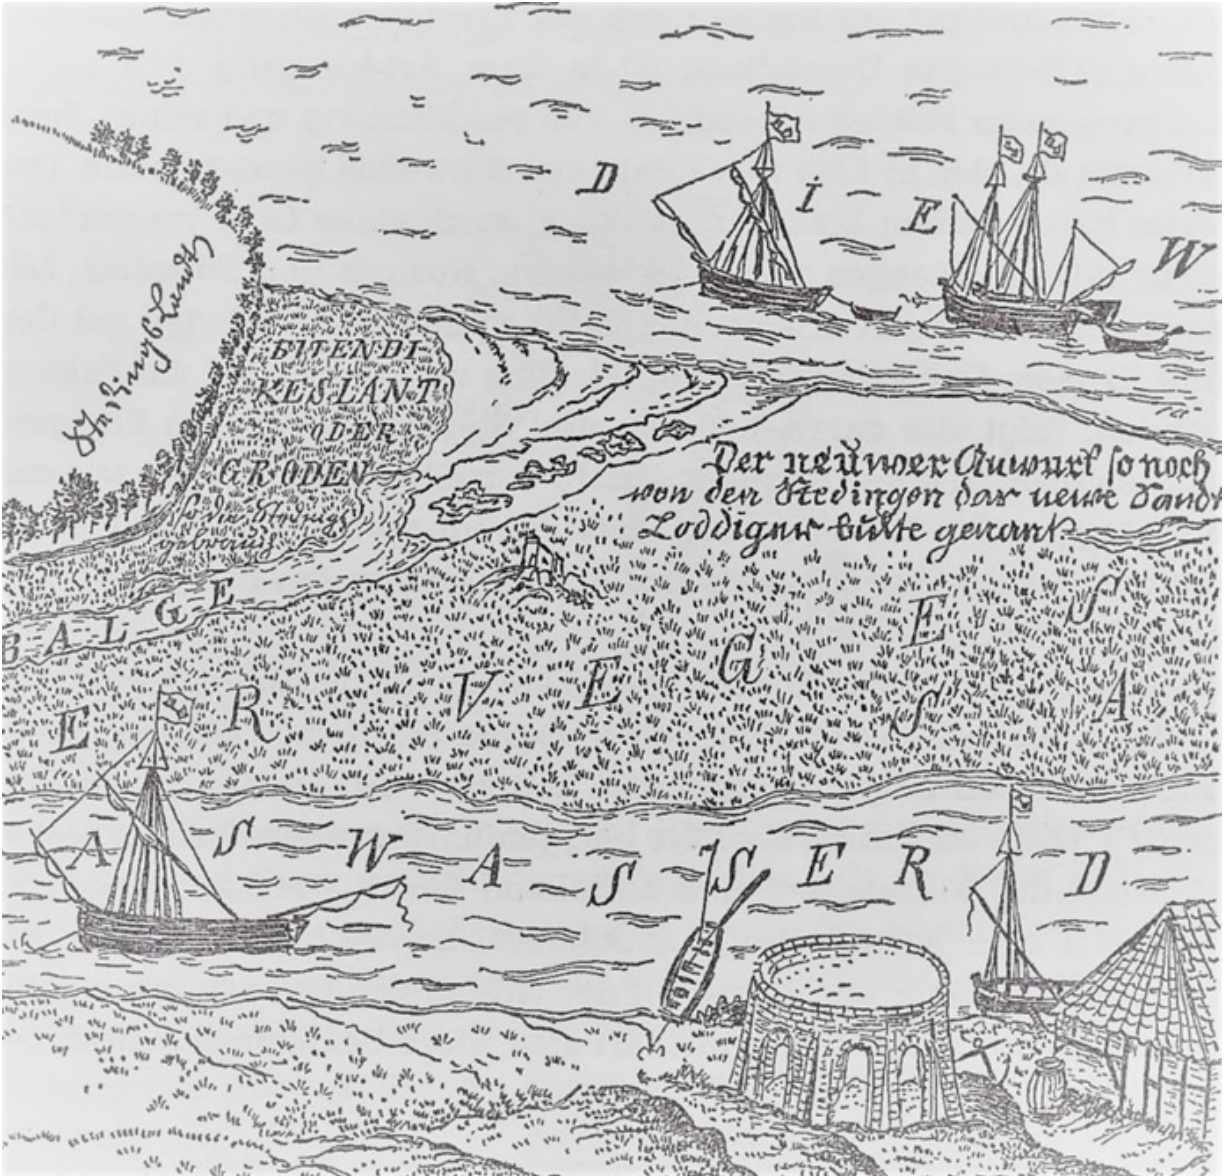 D I E W
BITENDI
KESLANT
ODER
GRODEN
so die Stedings
Der neüwer Anwurf so noch
von den Stedingen dar neuwe Sandt
Loddiger bulte genant
BALGE
E R V E G E S
S A
A S W A S S E R D